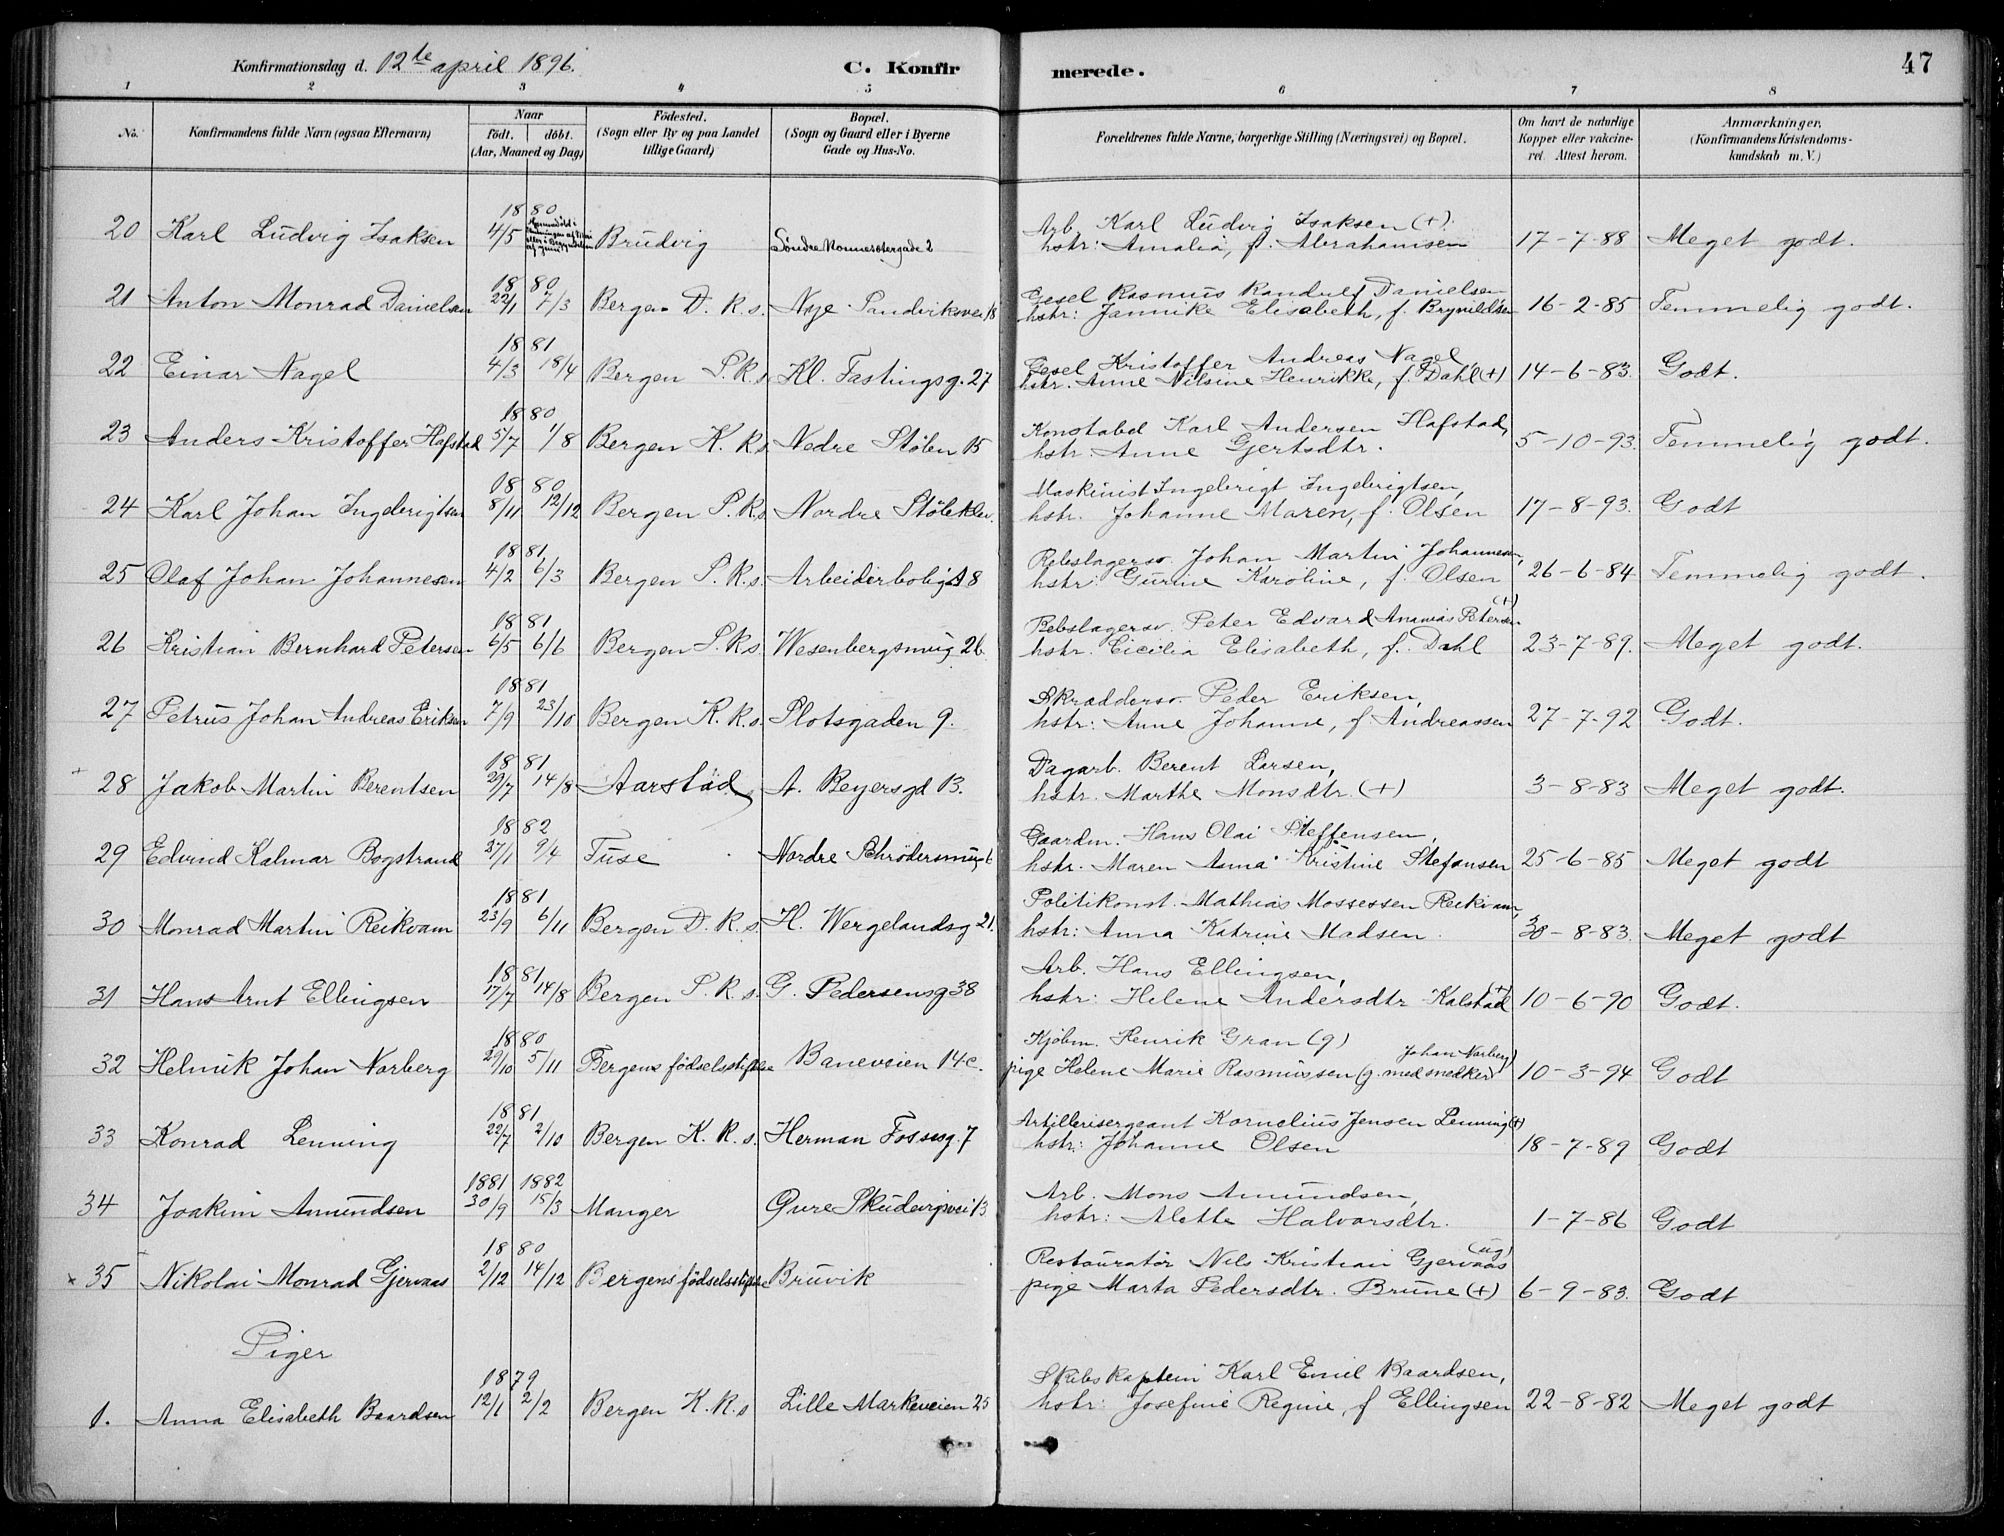 Konfirmationsdag d. 12te april 1896. C. Konfirmerede. 47
1 2 3 4 5 6 7 8
No. Konfirmandens fulde Navn (ogsaa Efternavn) Naar födt. döbt. (Aar, Maaned og Dag) Födested. (Sogn eller By og paa Landet tillige Gaard) Bopæl. (Sogn og Gaard eller i Byerne Gade og Hus-No. Forældrenes fulde Navne, borgerlige Stilling (Næringsvei) og Bopæl. Om havt de naturlige Kopper eller vakcineret. Attest herom. Anmærkninger. (Konfirmandens Kristendomskundskab m. V.)
1880
20 Karl Ludvig Isaksen 4/5 Brudvig Søndre 2 Arb. Karl Ludvig Isaksen (+).
hstr: Amalia, f. Abrahamsen 17-7-88 Meget godt.
1880
21 Anton Monrad Danielsen 22/1 7/3 Bergen D. K. s. Nye Sandviksvei 18 Gesel Rasmus Randulf Danielsen
hstr: Jannike Elisabeth, f. Brynildsen 16-2-85 Temmelig godt.
1881
22 Einar Nagel 4/3 18/4 Bergen S. K. s. Kl. Fastingsg. 27 Gesel Kristoffer Andreas Nagel
hstr. Anne Nilsine Henrikke, f. Dahl (+) 14-6-83. Godt.
1880
23 Anders Kristoffer Hafstad 5/7 1/8 Bergen K. K. s Nedre Stølen 15 Konstabel Karl Andersen Hafstad,
hstr. Anne Gjertsdtr. 5-10-93. Temmelig godt.
1880
24 Karl Johan Ingebrigtsen 8/11 12/12 Bergen S. K. s. Nordre Støleklev. Maskinist Ingebrigt Ingebrigtsen,
hstr. Johanne Maren, f. Olsen 17-8-93. Godt
1881
25 Olaf Johan Johannesen 4/2 6/3 Bergen S. K. s. Arbeiderbolig A8 Rebslagersv. Johan Martin Johannesen,
hstr: Gurine Karoline, f. Olsen 26-6-84 Temmelig godt.
1881
26 Kristian Bernhard Petersen 6/5 6/6 Bergen S. K s. Wesenbergsmug 26. Rebslagersv. Peter Edvard Ananias Petersen (+)
hstr. Cicilia Elisabeth, f. Dahl 23-7-89. Meget godt.
1881
27 Petrus Johan Andreas Eriksen 7/9 23/10 Bergen K. K. s. Slotsgaden 9. Skræddersv. Peder Eriksen,
hstr: Anne Johanne, f Andreassen 27-7-92 Godt.
1881
+ 28 Jakob Martin Berentsen 29/7 14/8 Aarstad A. Beyersgd B. Dagarb. Berent Larsen,
hstr. Marthe Monsdtr. (+) 3-8-83 Meget godt.
1882
29 Edvind Kalmar Bogstrand 27/1 9/4 Fuse Nordre Schrødersmug 6 Gaardm. Hans Olai Steffensen,
hstr. Maren Anna Kristine Stefansen 25-6-85 Meget godt
1881
30 Monrad Martin Reikvam 23/9 6/11 Bergen D. K. s. H. Wergelandsg 21. Politikonst. Mathias Mossessen Reikvam,
hstr: Anna Katrine Madsen. 30-8-83. Meget godt
1881
31 Hans Arnt Ellingsen 17/7 14/8 Bergen S. K. s. G. Pedersensg 38 Arb. Hans Ellingsen,
hstr: Helene Andersdtr Kalstad (+) 10-6-90 Godt.
1880
32 Helmik Johan Norberg 29/10 5/11 Bergens fødselsstiftelse Baneveien 14c. Kjøbm. Henrik Gran (g)
pige Helene Marie Rasmussen (g. med snedker Johan Norberg) 10-3-94 Godt
1881
33 Konrad Lenning 22/7 2/10 Bergen K. K. s. Herman Fossg. 7 Artillerisergeant Kornelius Jensen Lenning (+)
hstr: Johanne Olsen 18-7-89 Godt
1881 1882
34 Joakim Amundsen 30/9 15/3 Manger Øvre Skudevigsvei 13 Arb. Mons Amundsen,
hstr: Alette Halvorsdtr. 1-7-86 Godt
1880
x 35 Nikolai Monrad Gjervaas 2/12 14/12 Bergens fødselsstiftelse Bruvik Restauratør Nils Kristian Gjervaas (ug)
pige Marta Pedersdtr. Brune (+) 6-9-83. Godt
Piger
1879
1. Anna Elisabeth Baardsen 12/1 2/2 Bergen K. K. s Lille Markeveien 25 Skibskaptein Karl Emil Baardsen,
hstr: Josefine Regine, f Ellingsen 22-8-82 Meget godt